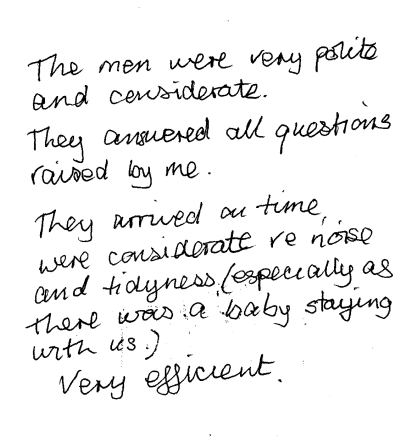 The men were very polite
and considerate.
They answered all questions
raised by me.
They arrived on time,
were considerate re noise
and tidyness (especially as
there was a baby staying
with us.)
Very efficient.